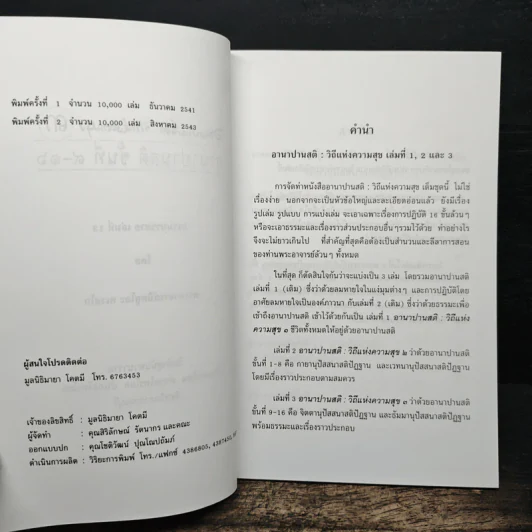 พิมพ์ครั้งที่ 1 จำนวน 10,000 เล่ม ธันวาคม 2541
พิมพ์ครั้งที่ 2 จำนวน 10,000 เล่ม สิงหาคม 2543
ผู้สนใจโปรดติดต่อ
มูลนิธิมายา โคตมี โทร. 6763453
เจ้าของลิขสิทธิ์ : มูลนิธิมายา โคตมี
ผู้จัดทำ : คุณสิริลักษณ์ รัตนากร และคณะ
ออกแบบปก : คุณโชติวัฒน์ ปุณโณปถัมภ์
ดำเนินการผลิต : วิริยะการพิมพ์ โทร./แฟกซ์ 4386805,
คำนำ
อานาปานสติ : วิถีแห่งความสุข เล่มที่ 1, 2 และ 3
การจัดทำหนังสืออานาปานสติ : วิถีแห่งความสุข เต็มชุดนี้ ไม่ใช่
เรื่องง่าย นอกจากจะเป็นหัวข้อใหญ่และละเอียดอ่อนแล้ว ยังมีเรื่อง
รูปเล่ม รูปแบบ การแบ่งเล่ม จะเอาเฉพาะเรื่องการปฏิบัติ 16 ขั้นล้วนๆ
หรือจะเอาธรรมะและเรื่องราวส่วนประกอบอื่นๆรวมไว้ด้วย ทำอย่างไร
จึงจะไม่ยาวเกินไป ที่สำคัญที่สุดคือต้องเป็นสำนวนและลีลาการสอน
ของท่านพระอาจารย์ล้วนๆ ทั้งหมด
ในที่สุด ก็ตัดสินใจกันว่าจะแบ่งเป็น 3 เล่ม โดยรวมอานาปานสติ
เล่มที่ 1 (เดิม) ซึ่งว่าด้วยลมหายใจในแง่มุมต่างๆ และการปฏิบัติโดย
อาศัยลมหายใจเป็นองค์ภาวนา กับเล่มที่ 2 (เดิม) ซึ่งว่าด้วยธรรมะเพื่อ
เข้าถึงอานาปานสติ เข้าไว้ด้วยกันเป็น เล่มที่ 1 อานาปานสติ : วิถีแห่ง
ความสุข ๑ ชีวิตทั้งหมดให้อยู่ด้วยอานาปานสติ
เล่มที่ 2 อานาปานสติ : วิถีแห่งความสุข ๒ ว่าด้วยอานาปานสติ
ขั้นที่ 1-8 คือ กายานุปัสสนาสติปัฏฐาน และเวทนานุปัสสนาสติปัฏฐาน
โดยมีเรื่องราวประกอบตามสมควร
เล่มที่ 3 อานาปานสติ : วิถีแห่งความสุข ๓ ว่าด้วยอานาปานสติ
ขั้นที่ 9-16 คือ จิตตานุปัสสนาสติปัฏฐาน และธัมมานุปัสสนาสติปัฏฐาน
พร้อมธรรมะและเรื่องราวประกอบ